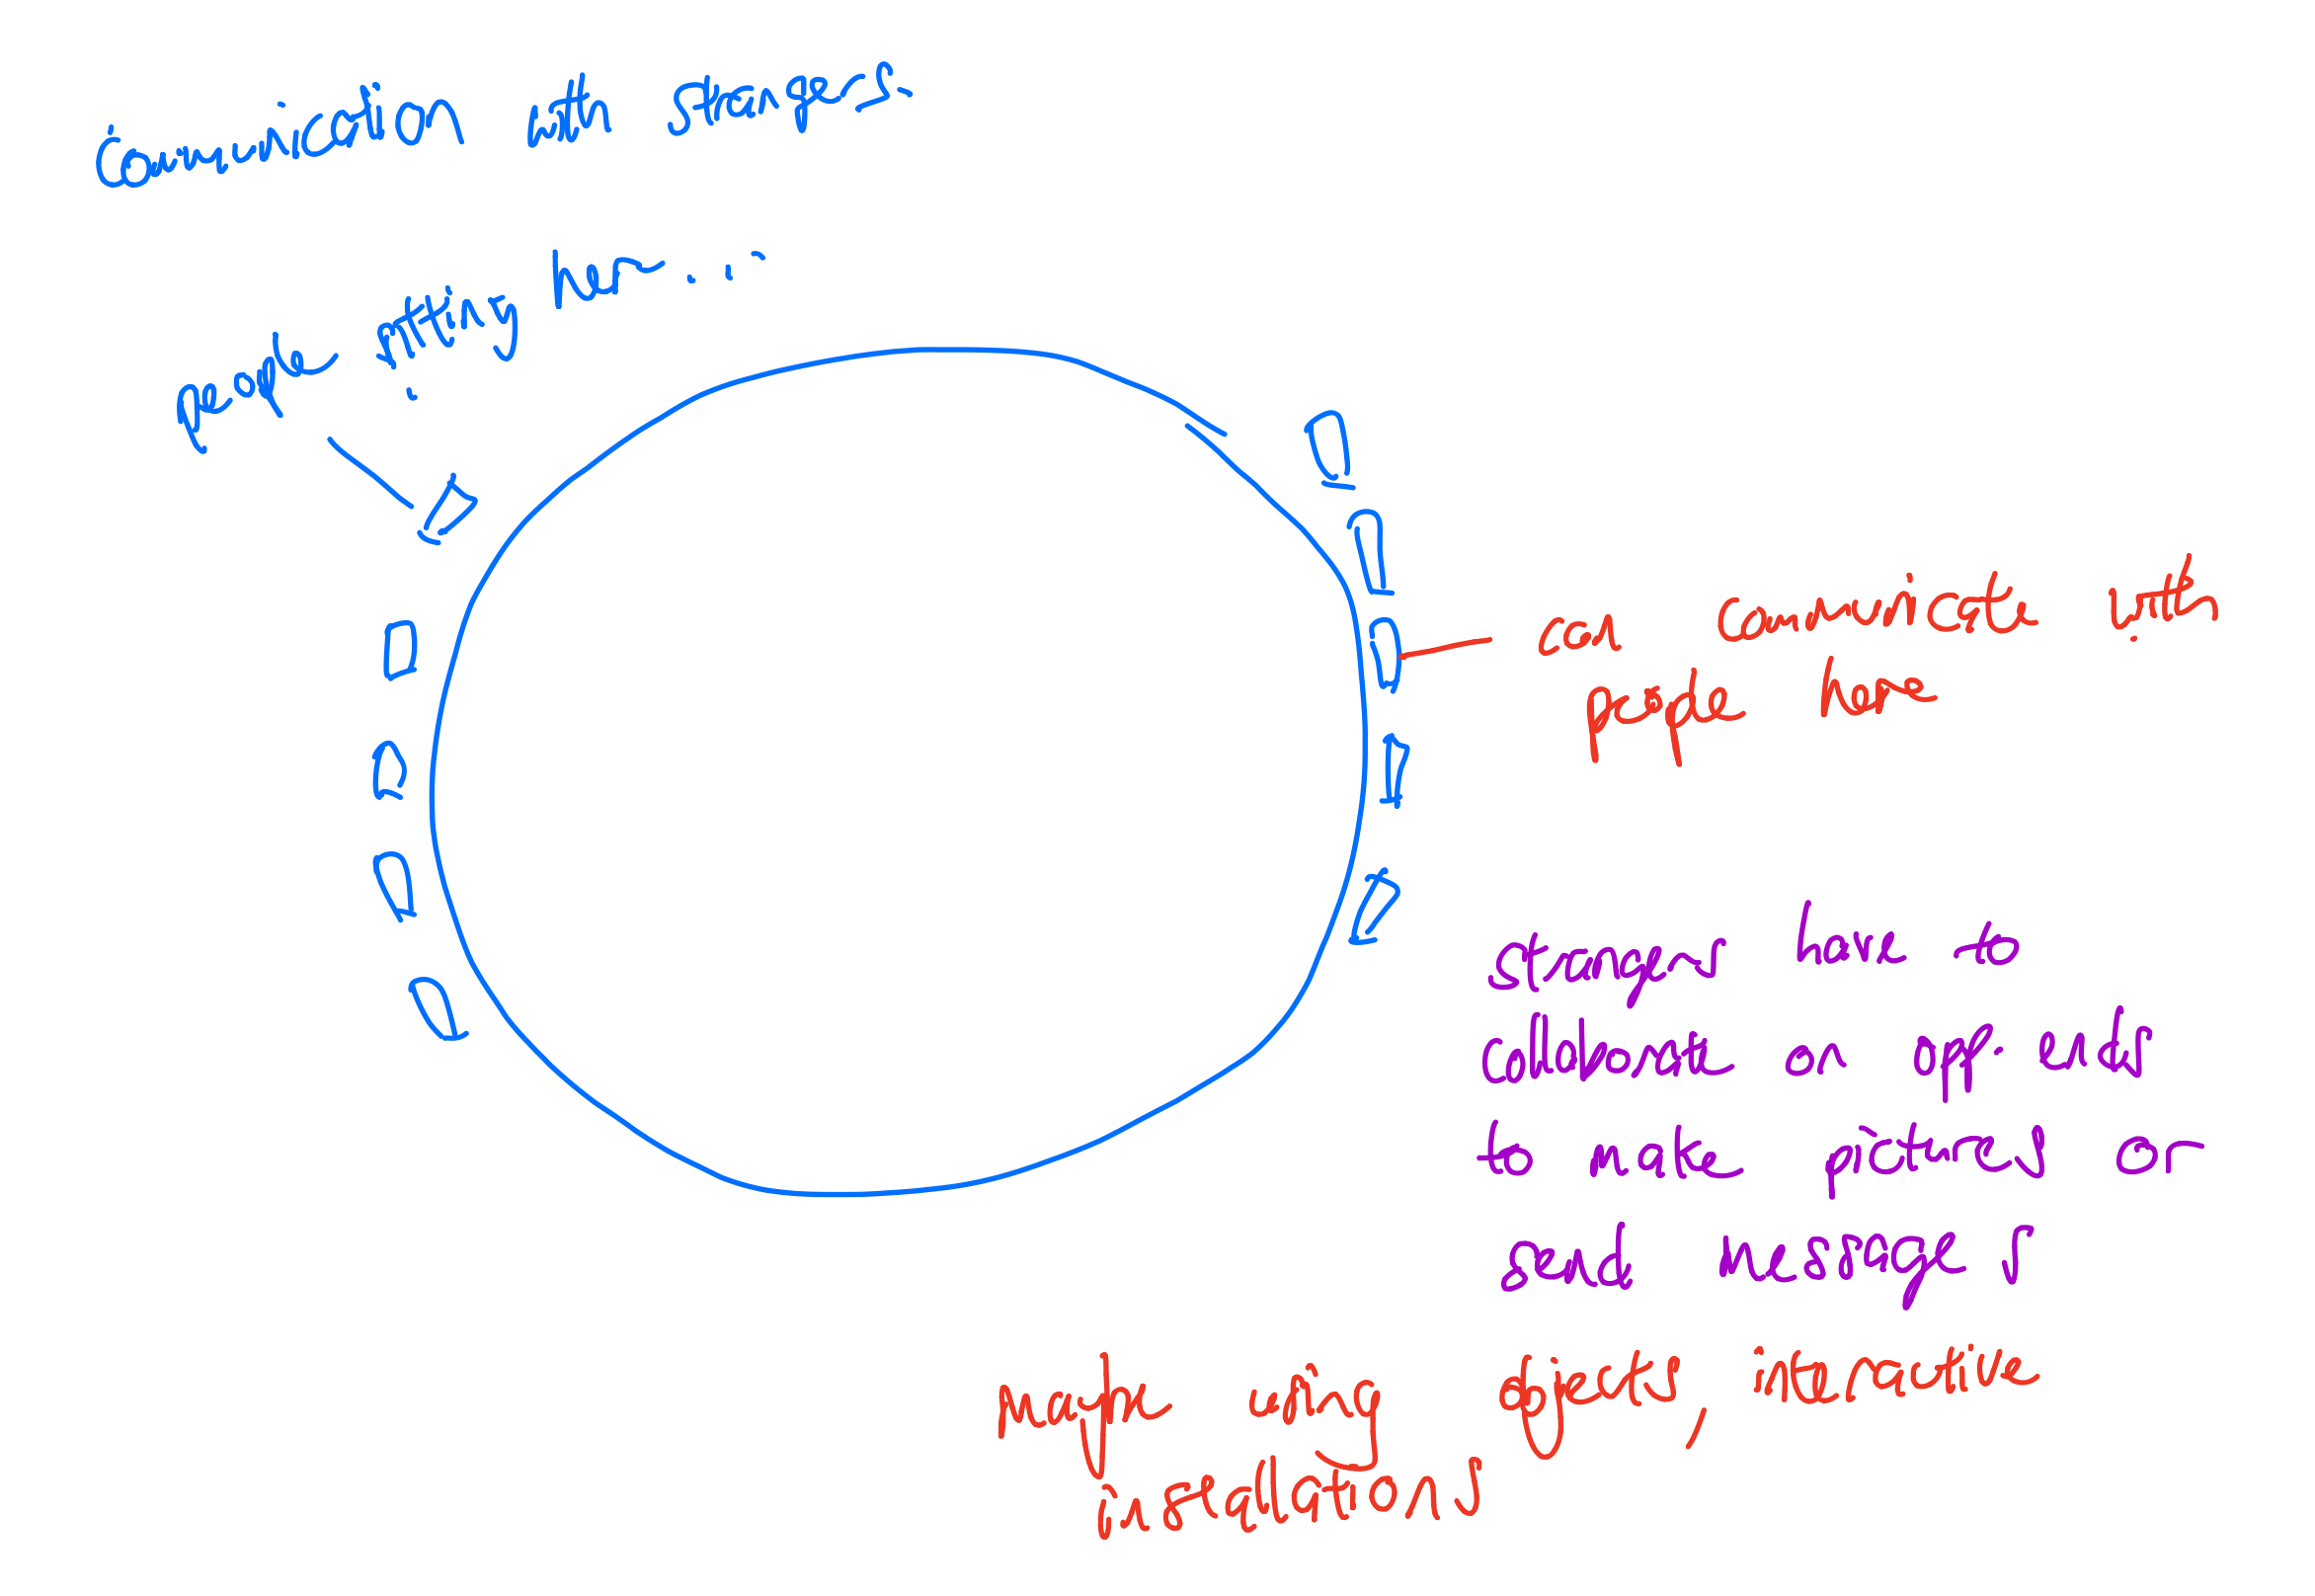 Communication with strangers
people sitting here...
can communicate with
people here
strangers have to
collaborate on opp. ends
to make pictures or
send messages
Maybe using objects, interactive
installations